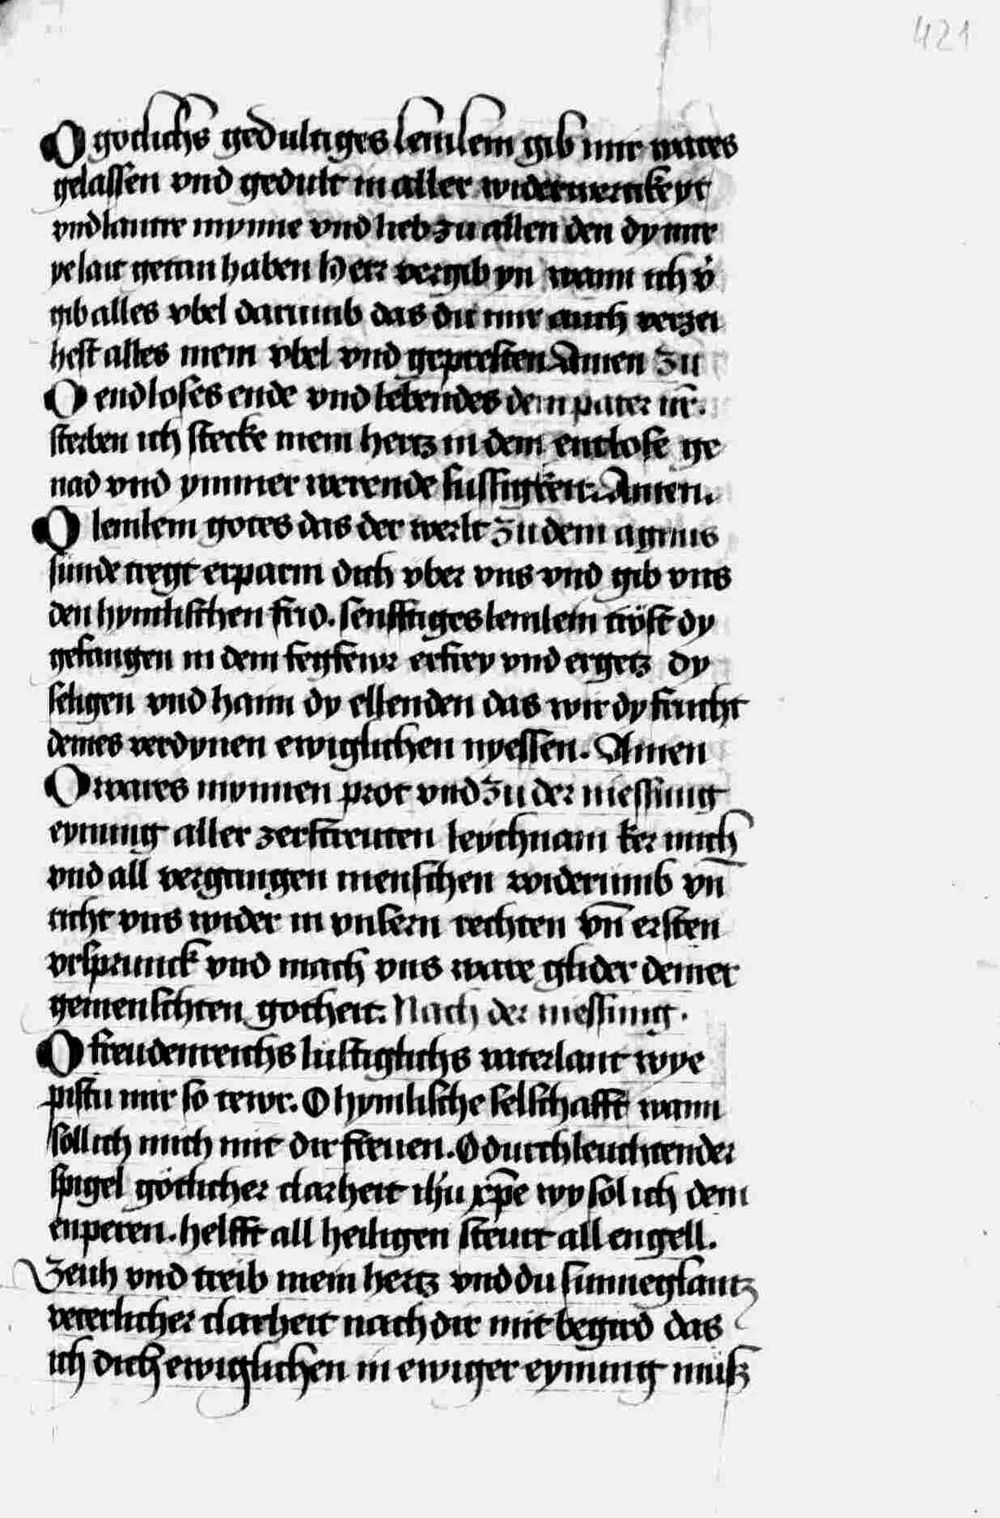 421
O gotlichs gedultiges lemlein gib mir wares
gelassen vnd gedult in aller widerwertikeyt
vnd lautre mynne vnd lieb zu allen den dy mir
ye lait getan haben Herr vergib yn wann ich v̄
gib alles vbel darumb das du mir auch verzei
hest alles mein vbel vnd gepresten Amen Zu
O endloses ende vnd lebendes dem pater nr̄.
sterben ich stecke mein hertz in dein entlose ge
nad vnd ymmer werende sussigkeit. Amen.
O lemlein gotes das der werlt Zu dem agnus
sunde tregt erparm dich vber vns vnd gib vns
den hymlischen frid. senfftiges lemlein tröst dy
gefangen in dem fegfewr erfrey vnd ergetz dy
seligen vnd haim dy ellenden das wir dy frucht
deines verdynen ewiglichen nyessen. Amen
O wares mynnen prot vnd Zu der niessung
eynung aller zerstreuten leychnam ker mich
vnd all vergangen menschen widerumb vn̄
richt vns wider in vnsern rechten vn̄ ersten
vrsprunck vnd mach vns ware glider deiner
gemenschten gotheit. Nach der niessung.
O freudenreichs lustiglichs vaterlant wye
pistu mir so tewr. O hymlische selschafft wann
soll ich mich mit dir freuen. O durchleuchtender
spigel götlicher clarheit ih̄u xp̄e wy sol ich dein
enperen. helfft all heiligen steurt all engell.
Zeuh vnd treib mein hertz vnd du sunneglantz
veterlicher clarheit nach dir mit begird das
ich dich ewiglichen in ewiger eynung müß